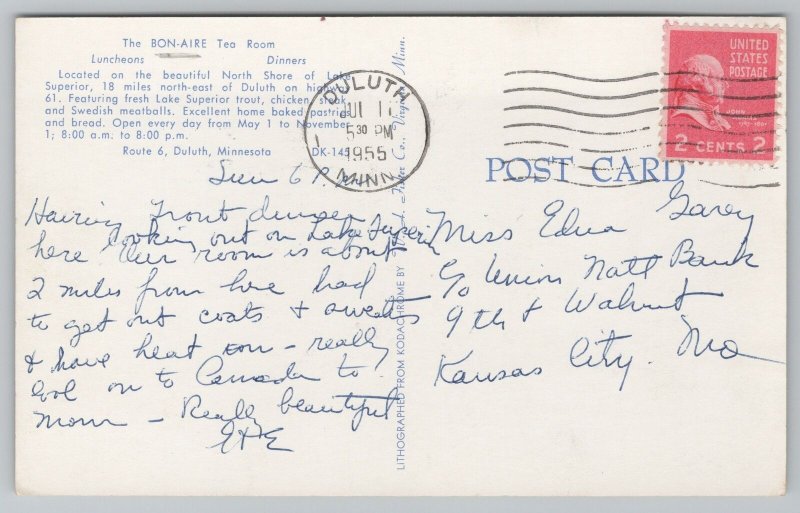 The BON-AIRE Tea Room
Luncheons Dinners
Located on the beautiful North Shore of Lake
Superior, 18 miles north-east of Duluth on highway
61. Featuring fresh Lake Superior trout, chicken, steak,
and Swedish meatballs. Excellent home baked pastries
and bread. Open every day from May 1 to November
1; 8:00 a.m. to 8:00 p.m.
Route 6, Duluth, Minnesota DK-145
DULUTH
JUL 11
5 30 PM
1955
MINN.
UNITED
STATES
POSTAGE
JOHN
2 CENTS 2
POST CARD
Sun 6 P.M.
Having Trout dinner
looking out on Lake Superior
here Our room is about
2 miles from here had
to get out coats & sweaters
& have heat on - really
cool on to Canada to
morn - Really beautiful
E & E
LITHOGRAPHED FROM KODACHROME BY Co., Virginia, Minn.
Miss Edna Garey
c/o Union Natl Bank
9th & Walnut
Kansas City. Mo